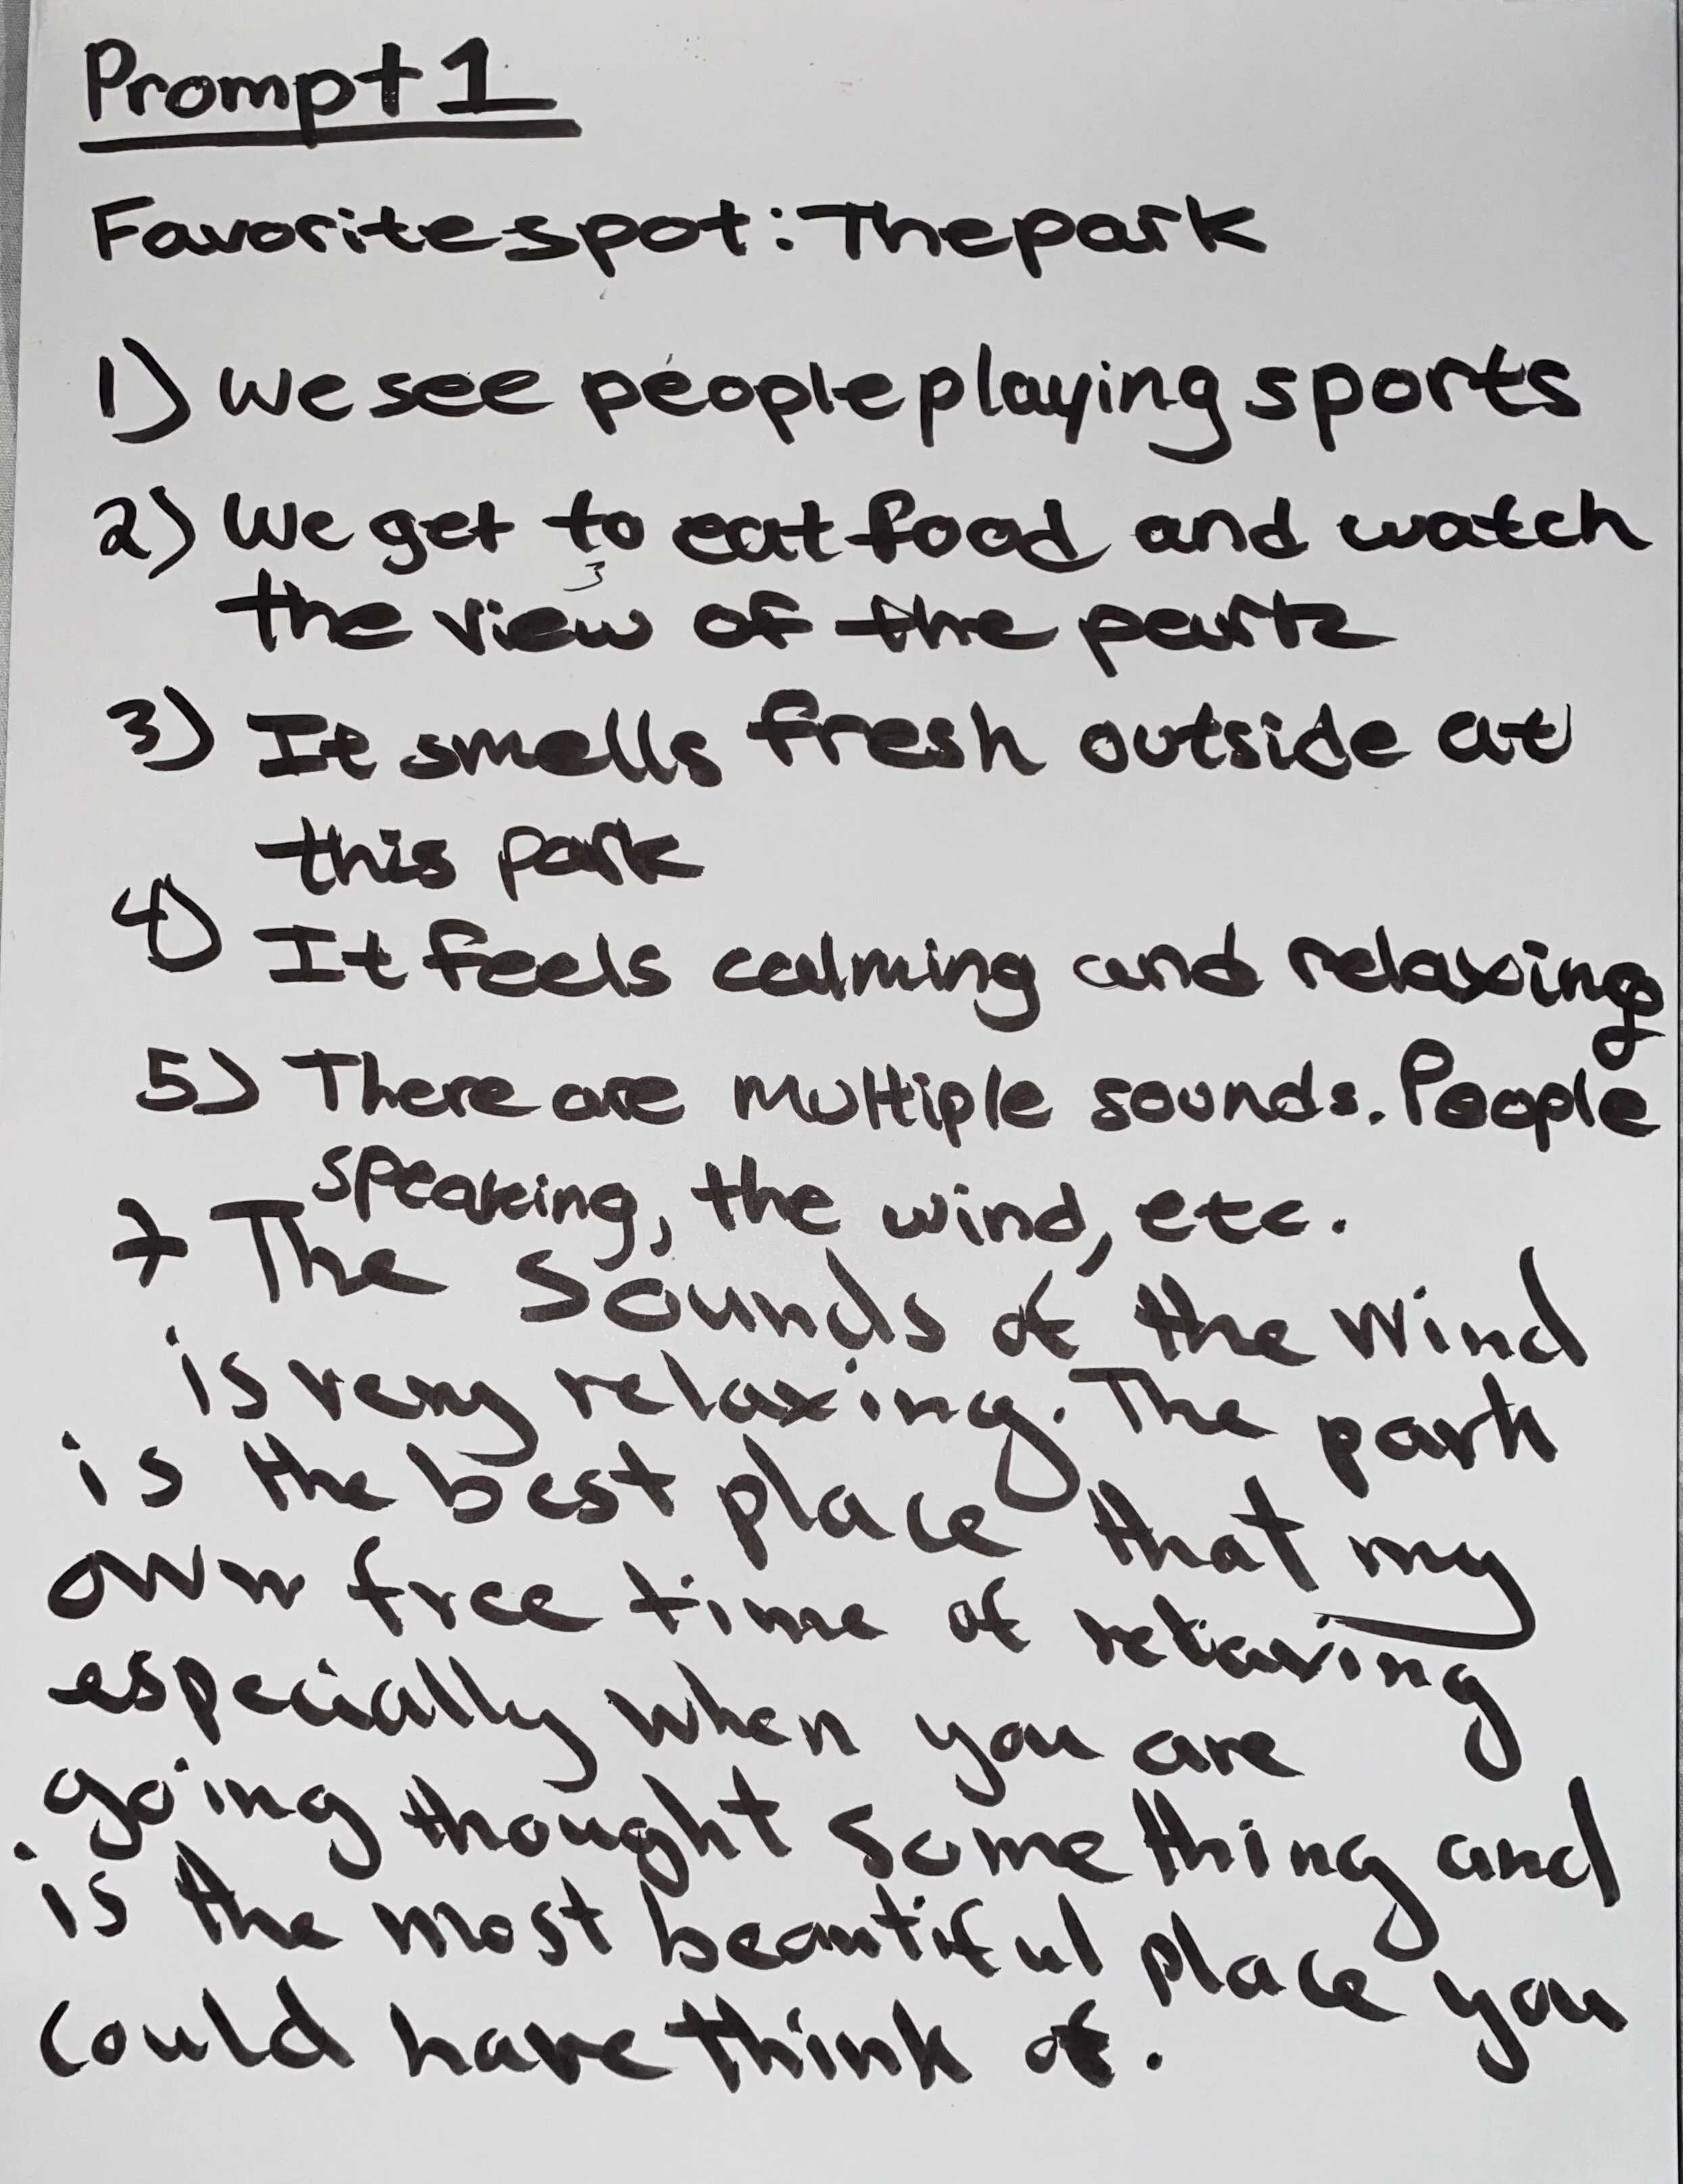 Prompt 1
Favorite spot: The park
1) we see people playing sports
2) We get to eat food and watch
the view of the park
3) It smells fresh outside at
this park
4) It feels calming and relaxing
5) There are multiple sounds. People
speaking, the wind, etc.
The Sounds of the wind
is very relaxing. The park
is the best place that my
own free time of relaxing
especially when you are
going thought something and
is the most beautiful place you
could have think of.